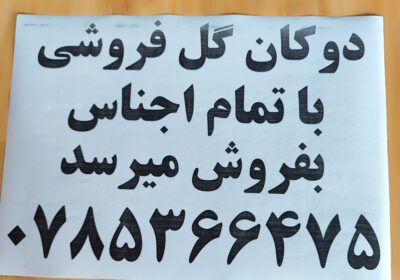 دوکان گل فروشی
با تمام اجناس
بفروش میرسد
۰۷۸۵۳۶۶۴۷۵